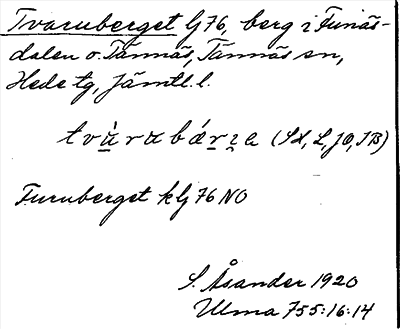 Tvaruberget lj 76, berg i Funäs-
dalen o. Tännäs, Tännäs sn,
Hede tg, Jämtl. l.
tvàrubárza (SX, L, JO, IB)
Furuberget klj 76 NO
S. Åsander 1920
Ulma 755:16:14